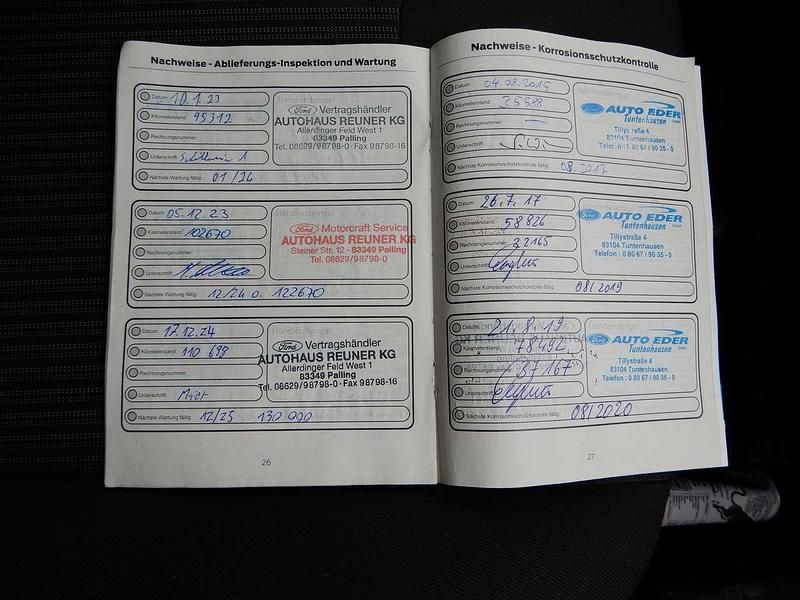 Nachweise - Ablieferungs-Inspektion und Wartung
Datum: 10.1.23
Kilometerstand: 95312
Rechnungsnummer:
Unterschrift:
Nächste Wartung fällig: 01/26
Händlerstempel
Ford Vertragshändler
AUTOHAUS REUNER KG
Allerdinger Feld West 1
83349 Palling
Tel. 08629/98798-0 · Fax 98798-16
Datum: 05.12.23
Kilometerstand: 102670
Rechnungsnummer:
Unterschrift:
Nächste Wartung fällig: 12/24 o. 122670
Händlerstempel
Ford Motorcraft Service
AUTOHAUS REUNER KG
Steiner Str. 12 · 83349 Palling
Tel. 08629/98798-0
Datum: 17.12.24
Kilometerstand: 110 698
Rechnungsnummer:
Unterschrift:
Nächste Wartung fällig: 12/25 130 000
Händlerstempel
Ford Vertragshändler
AUTOHAUS REUNER KG
Allerdinger Feld West 1
83349 Palling
Tel. 08629/98798-0 · Fax 98798-16
26
Nachweise - Korrosionsschutzkontrolle
Datum: 04.08.2015
Kilometerstand: 35588
Rechnungsnummer:
Unterschrift:
Nächste Korrosionsschutzkontrolle fällig: 08.2017
Ford AUTO EDER
Tuntenhausen GmbH
Tillys raße 4
83104 Tuntenhausen
Telefon: 0 80 67 / 90 35 - 0
Datum: 26.7.17
Kilometerstand: 58826
Rechnungsnummer: 32165
Unterschrift:
Nächste Korrosionsschutzkontrolle fällig: 08/2019
Händlerstempel
Ford AUTO EDER
Tuntenhausen GmbH
Tillystraße 4
83104 Tuntenhausen
Telefon : 0 80 67 / 90 35 - 0
Datum: 21.8.19
Kilometerstand: 78492
Rechnungsnummer: 37167
Unterschrift:
Nächste Korrosionsschutzkontrolle fällig: 08/2020
Händlerstempel
Ford AUTO EDER
Tuntenhausen GmbH
Tillystraße 4
83104 Tuntenhausen
Telefon : 0 80 67 / 90 35 - 0
27